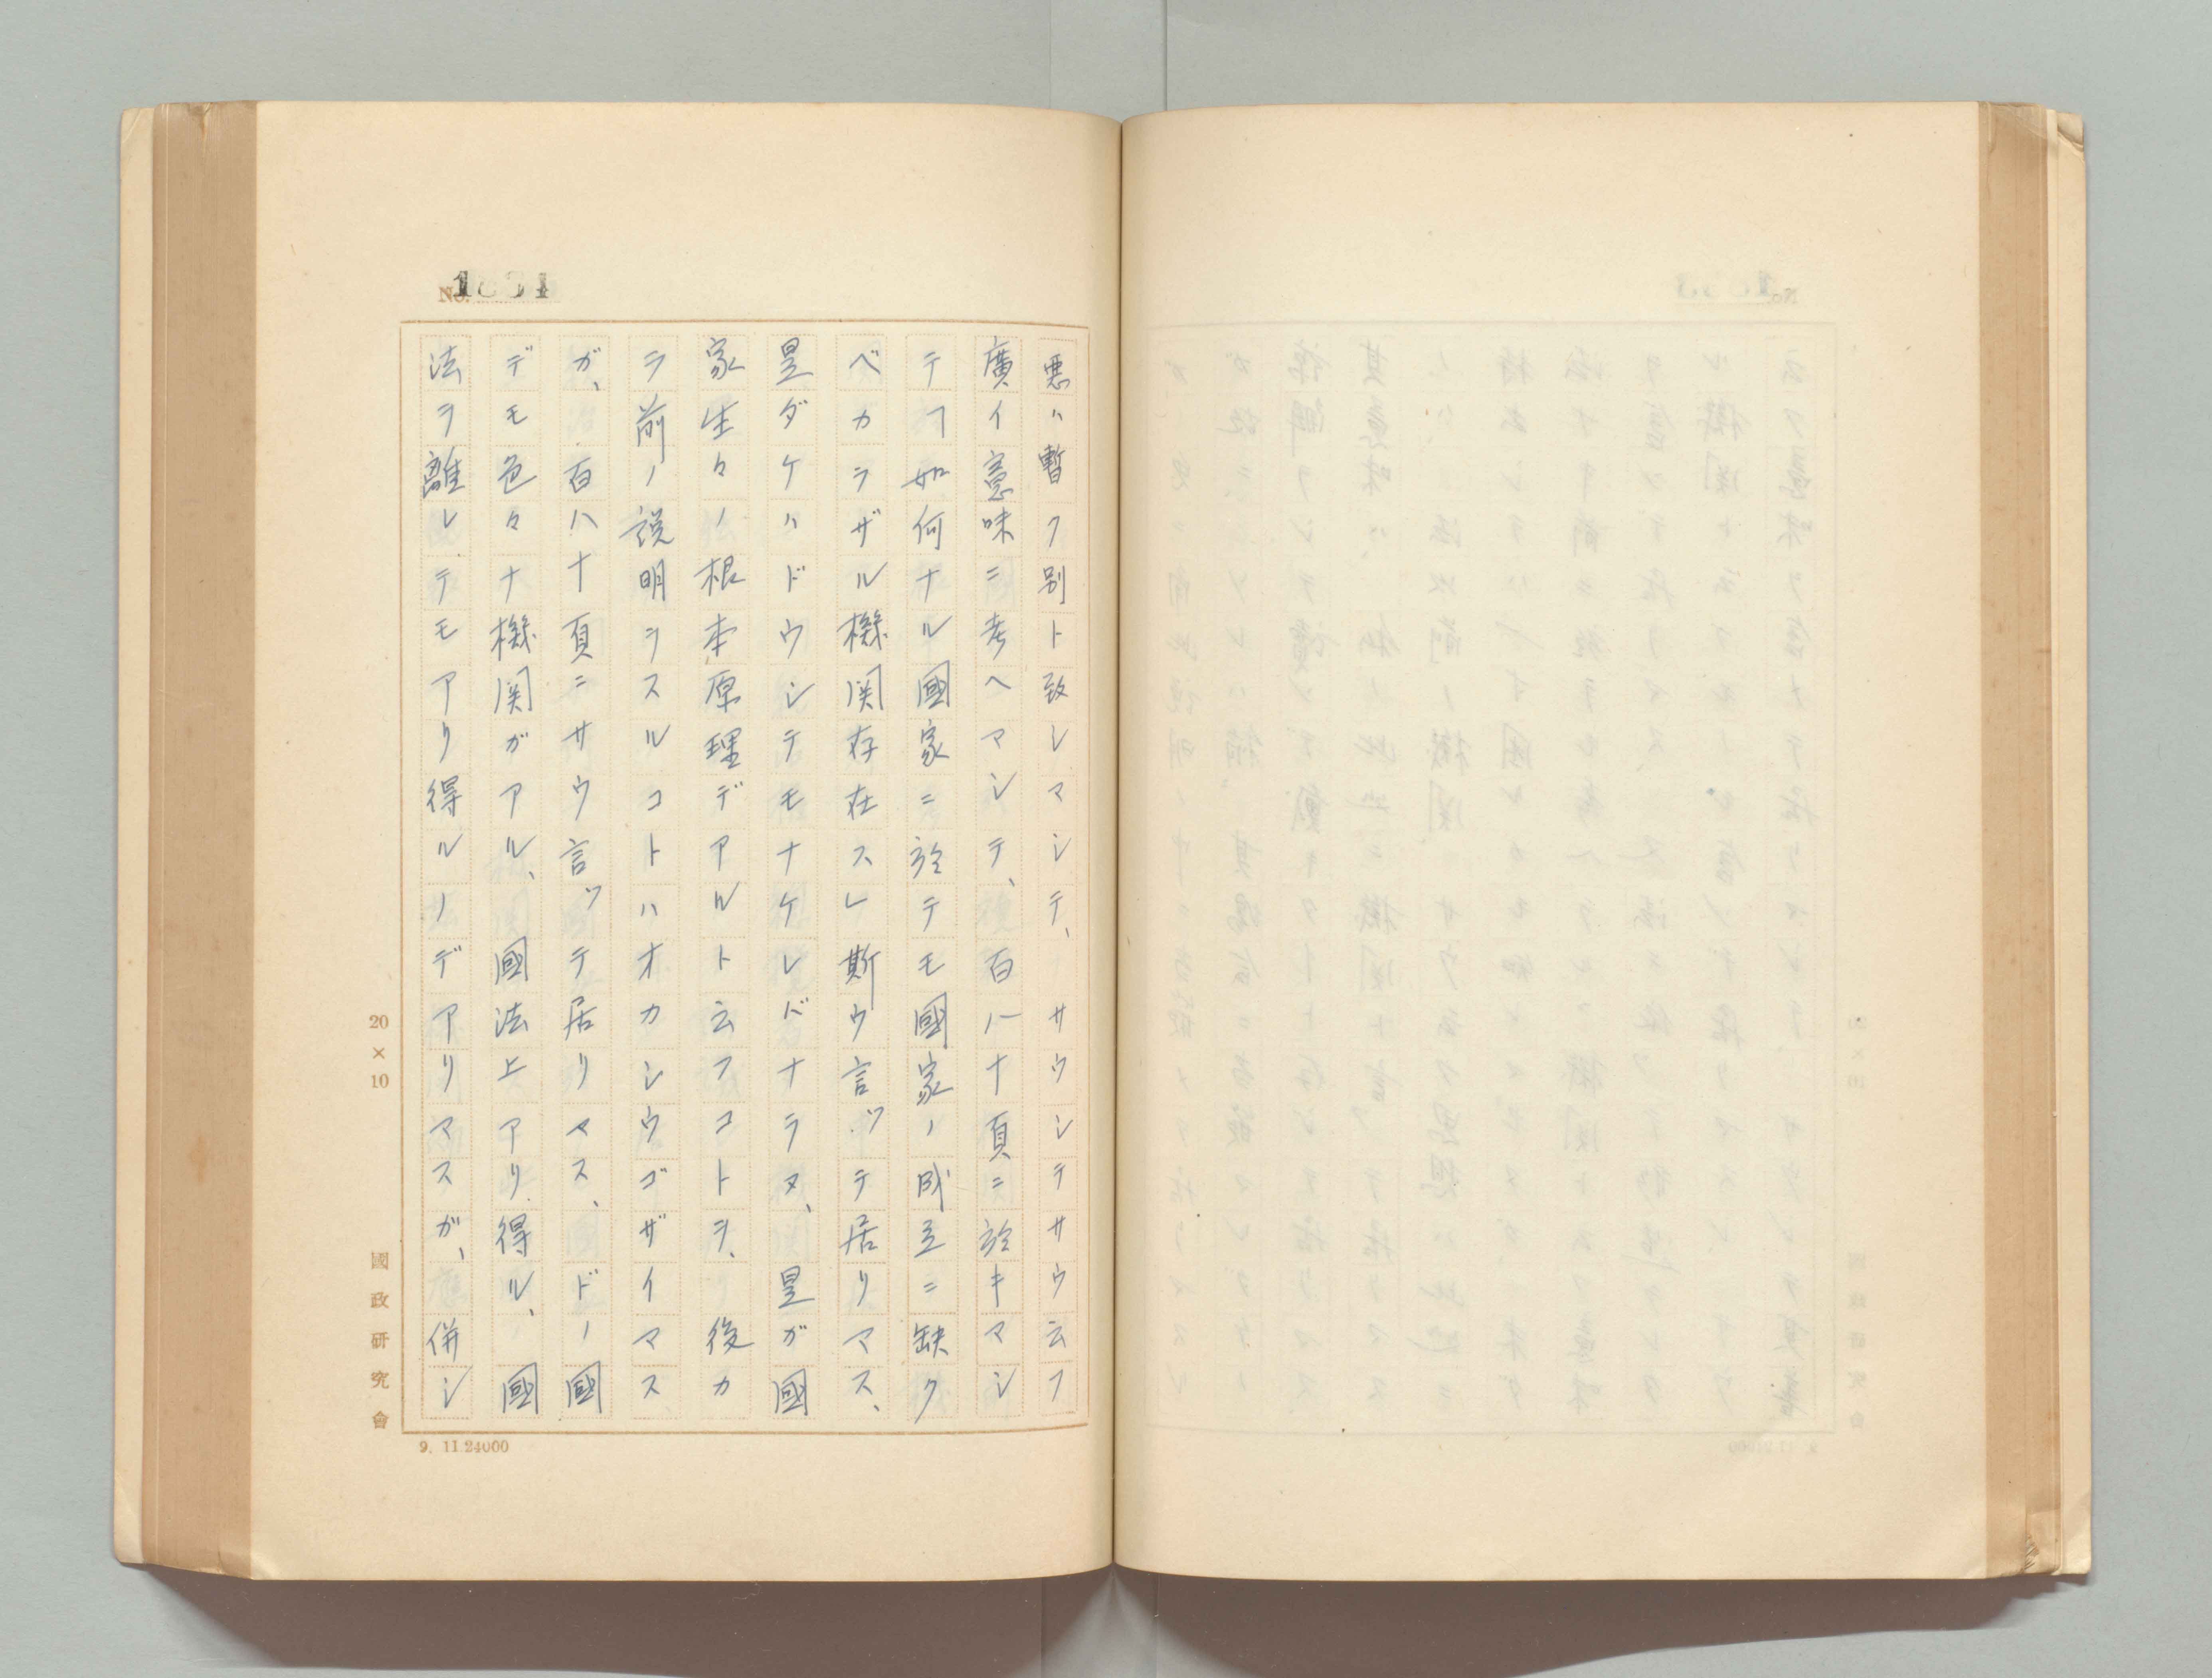 悪ハ暫ク別ト致シマシテ、サウシテサウ云フ
廣イ意味ニ考ヘマシテ、百八十頁ニ於キマシ
テフ如何ナル國家ニ於テモ國家ノ成立ニ缺ク
ベカラザル機関存在スレ斯ウ言ッテ居リマス、
是ダケハドウシテモナケレバナラヌ、是ガ國
家生々ノ根本原理デアルト云フコトヲ、後カ
ラ前ノ説明ヲスルコトハオカシウゴザイマス
ガ、百八十頁ニサウ言ッテ居リマス、ドノ國
デモ色々ナ機関ガアル、國法上アリ得ル、國
法ヲ離レテモアリ得ルノデアリマスガ、併シ
20×10
國政研究會
9. 11.24000